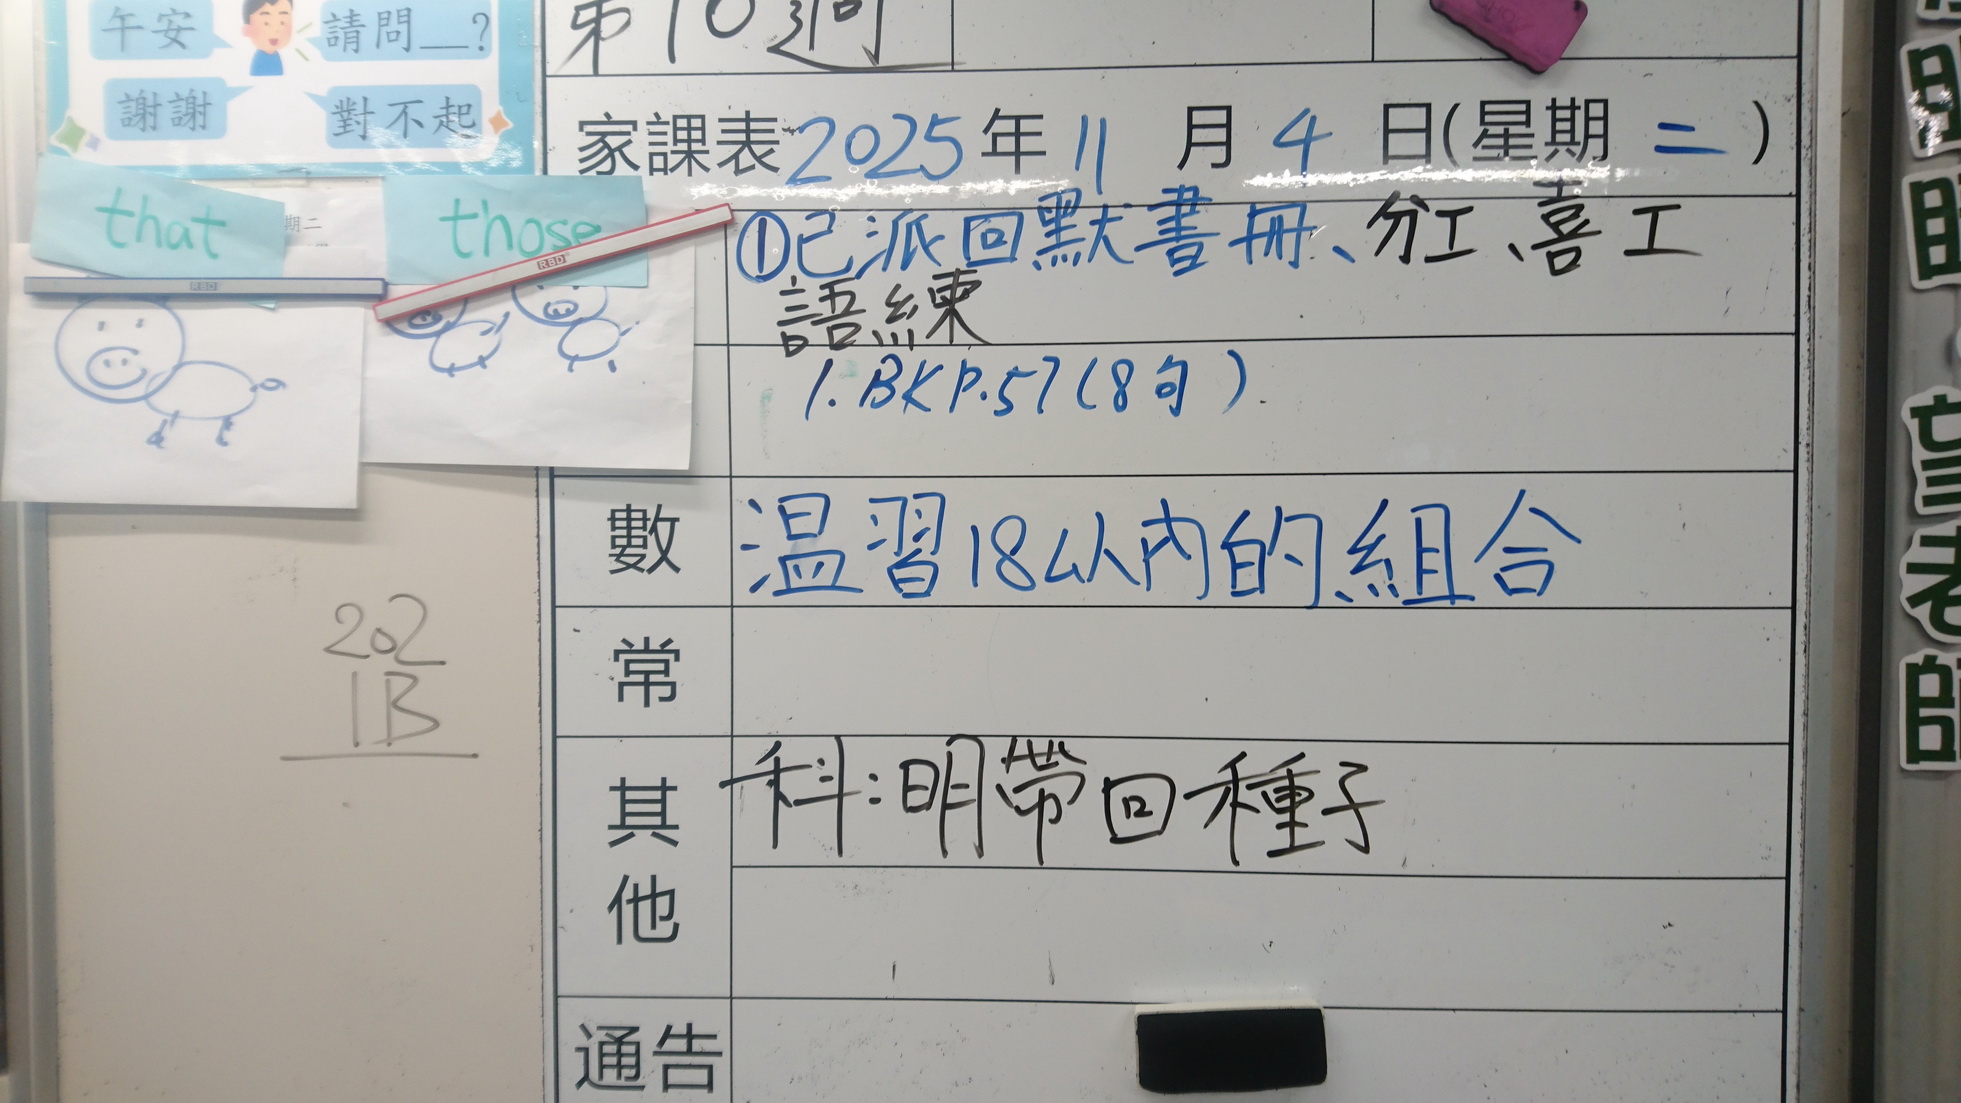 午安
請問__?
謝謝
對不起
第10週
家課表2025年11月4日(星期二)
that
those
期二
RBD
RBD
①已派回默書冊、分工、喜工
語練
1.BK P.57(8句)
數 温習18以內的組合
202
1B
常
其他 科:明帶回種子
通告
老師